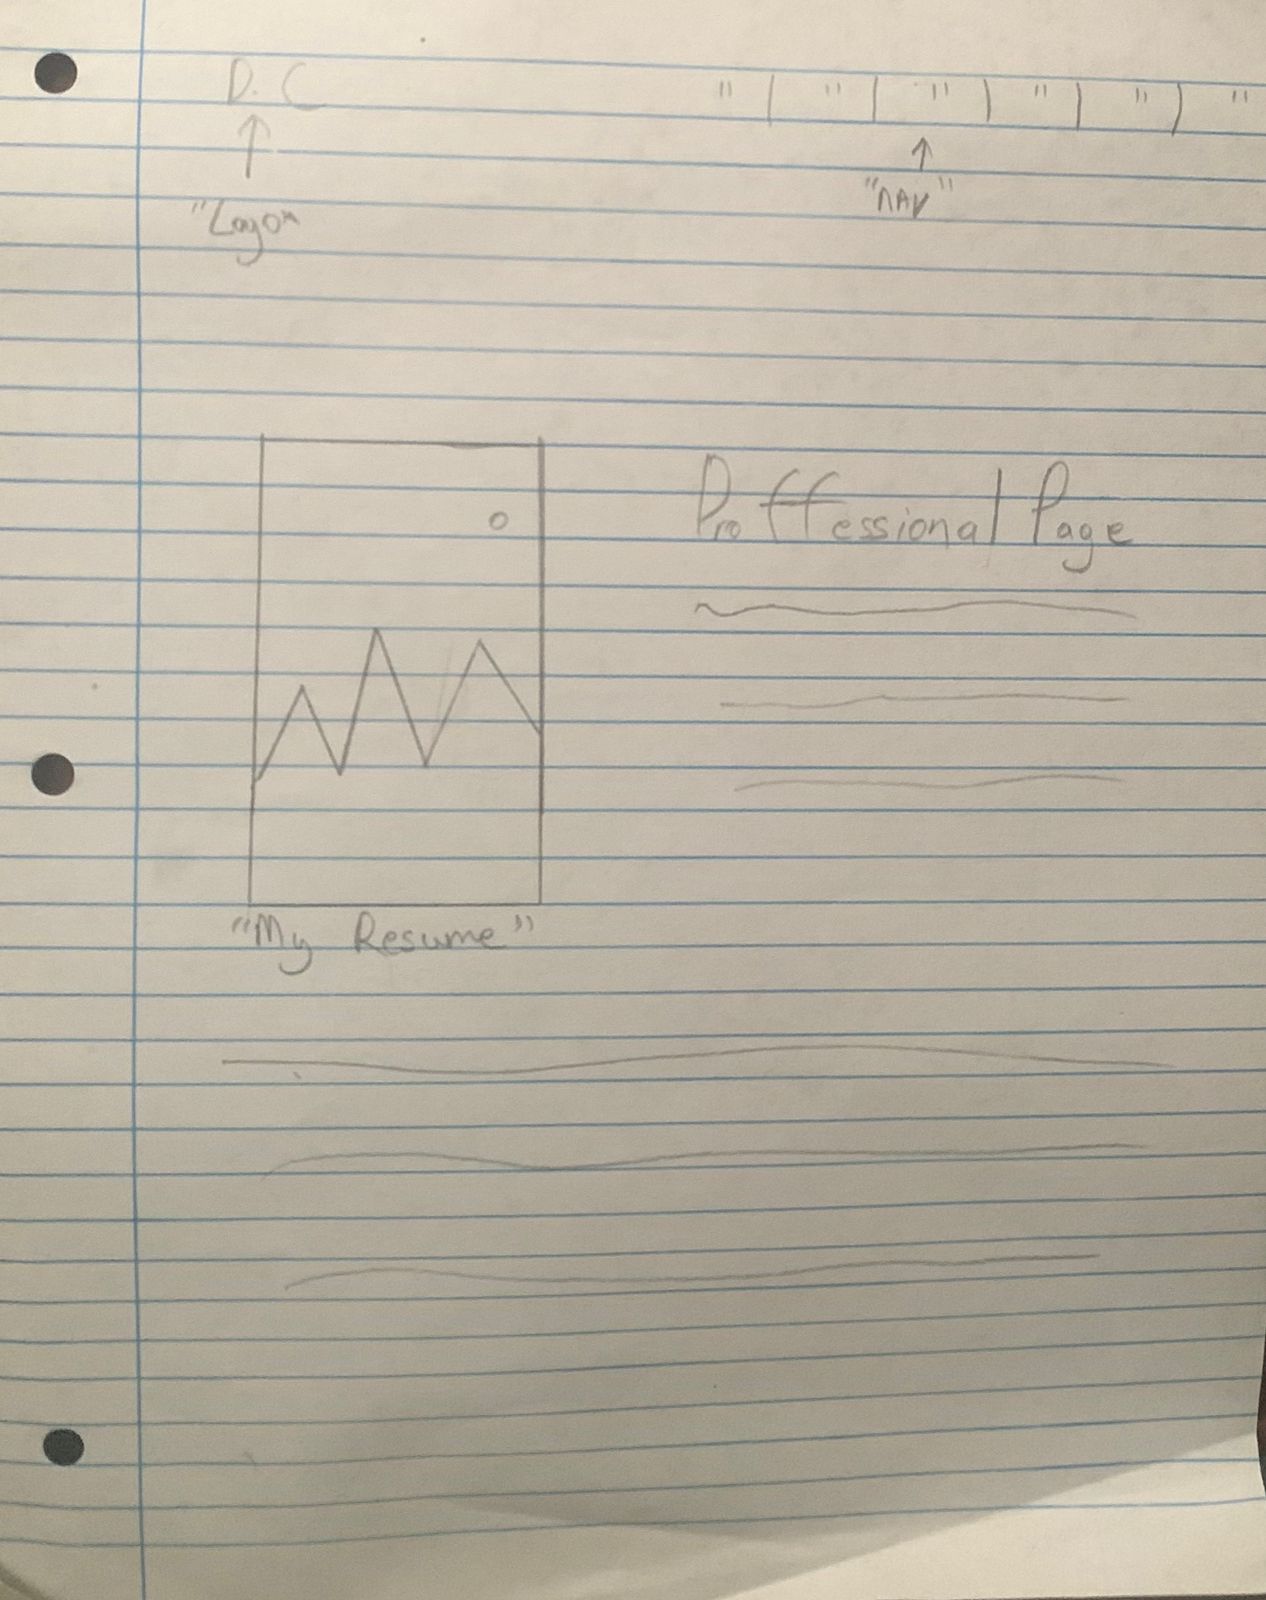 D. C
" | " | " | " | " | "
"Logo"
"NAV"
Proffessional Page
"My Resume"